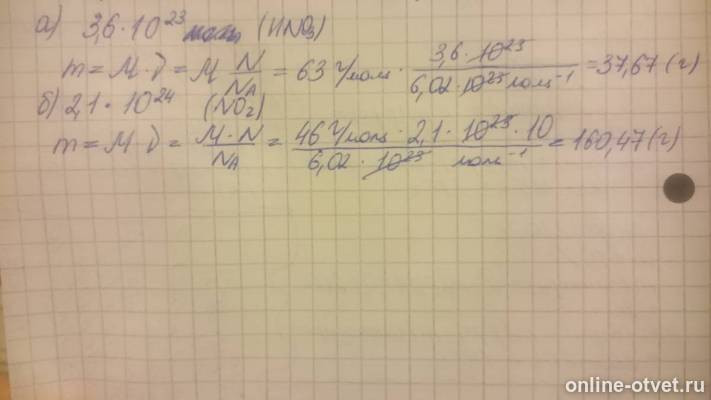 а) 3,6·10²³ (HNO₃)
m = M·ν = M N/Nₐ = 63 г/моль · 3,6·10²³/6,02·10²³ моль⁻¹ = 37,67 (г)
б) 2,1·10²⁴ (NO₂)
m = M·ν = M·N/Nₐ = 46 г/моль · 2,1·10²³·10/6,02·10²³ моль⁻¹ = 160,47 (г)
online-otvet.ru